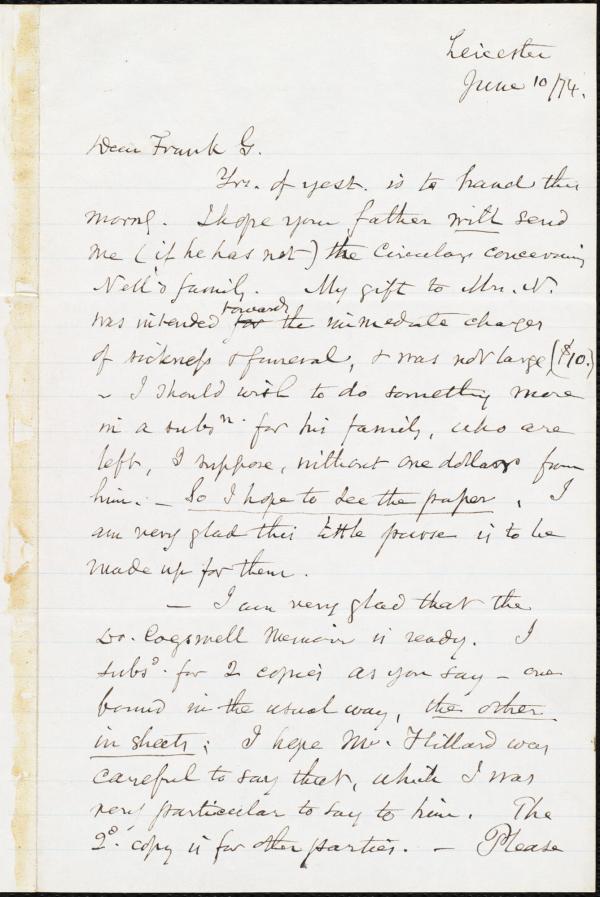 Leicester
June 10/74.
Dear Frank G.
Yrs. of yest. is to hand this
morng. I hope your father will send
me (if he has not) the Circular concerning
Nell's family. My gift to Mrs. N.
was intended for towards the immediate charges
of sickness & funeral, & was not large, ($10.)
- I should wish to do something more
in a subsn. for his family, who are
left, I suppose, without one dollar from
him. - So I hope to see the paper. I
am very glad this little purse is to be
made up for them.
- I am very glad that the
Dr. Cogswell Memoir is ready. I
subsd. for 2 copies as you say - one
bound in the usual way, the other
in sheets; I hope Mr. Hillard was
careful to say that, which I was
very particular to say to him. The
2d. copy is for other parties. - Please